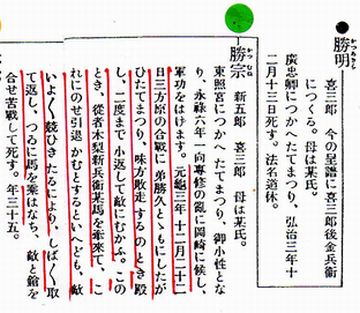 勝明
かつあきら
喜三郎　今の呈譜に喜三郎後金兵衞
につくる。母は某氏。
廣忠卿につかへたてまつり、弘治三年十
二月十三日死す。法名道休。
勝宗
かつむね
新五郎　喜三郎　母は某氏。
東照宮につかへたてまつり、御小性とな
り、永祿六年一向專修の亂に岡崎に候し、
軍功をはげます。元龜三年十二月二十二
日三方原の合戰に弟勝久とゝもにしたが
ひたてまつり、味方敗走するのとき殿
し、二度まで小返して敵にむかふ。この
とき、從者木梨新兵衞某馬を牽來て、こ
れにのせ引退かむとするといへども、敵
いよ〱競ひきたるにより、しば〱取
て返し、つゐに馬を乘はなち、敵と鎗を
合せ苦戰して死す。年三十五。